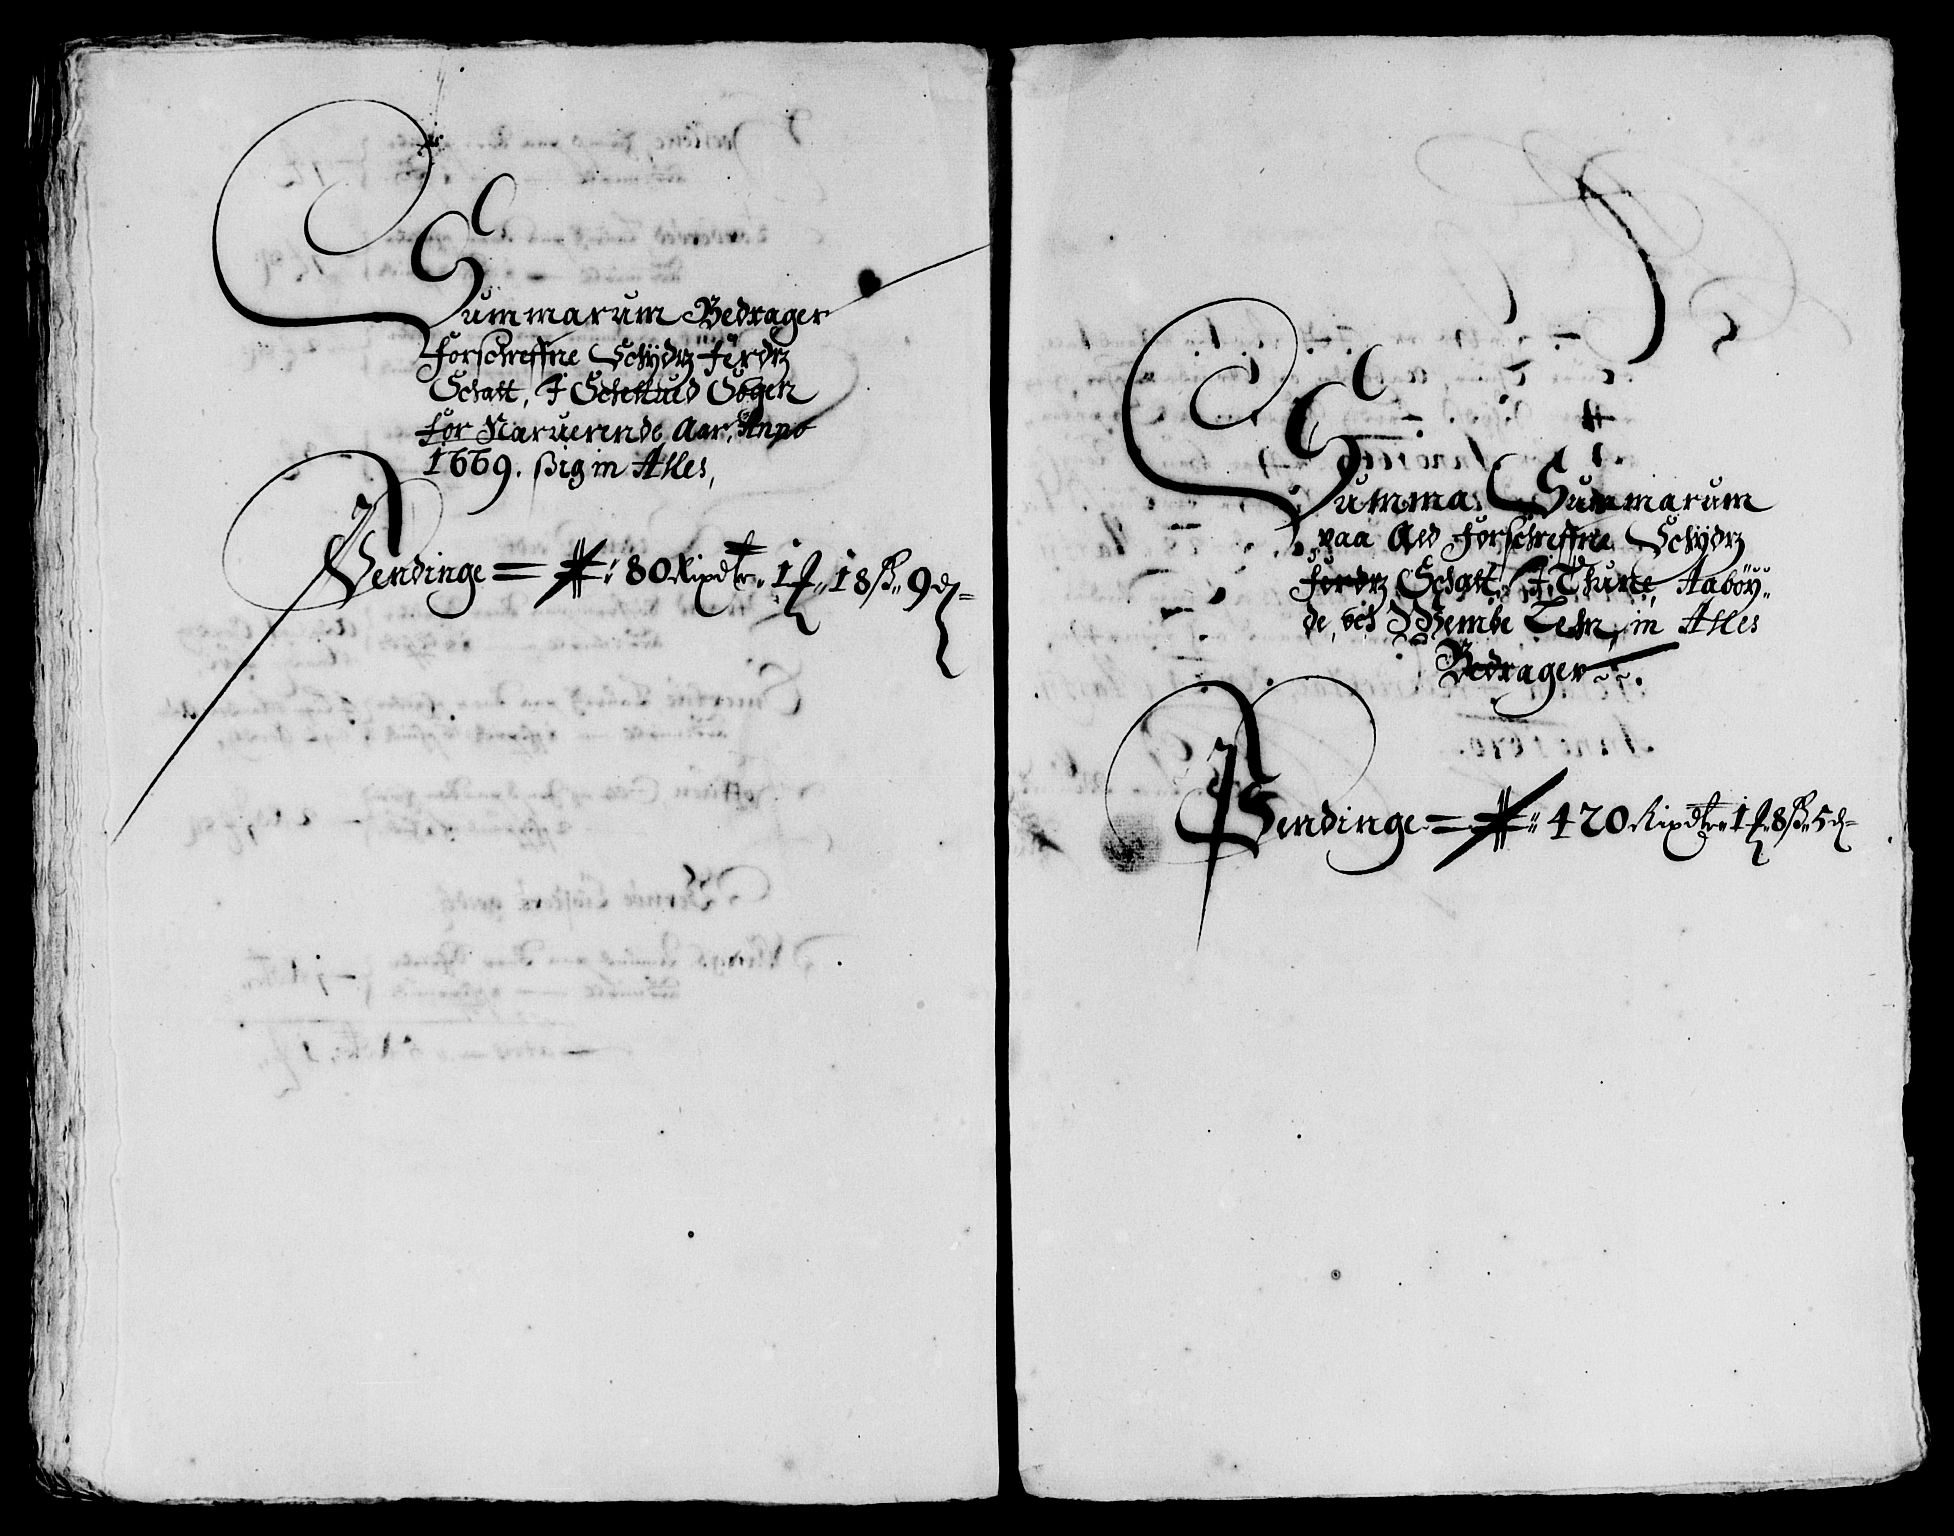 Summarum Bedrager
forschreffne Schydtz ferdtz
Schatt, I Schettuid Sogen
for Naruerende Aar, Anno
1669. sig in Alles,
Pendinge = 80 Rixdlr 1 18 ß 9
Summa Summarum
paa Ald forschreffne Schydtz
ferdtz Schatt I Thune Aaböy„
de, vdi Lehn, in Alles
Bedrager
Pendinge = 420 Rixdlr 1 8 ß 5